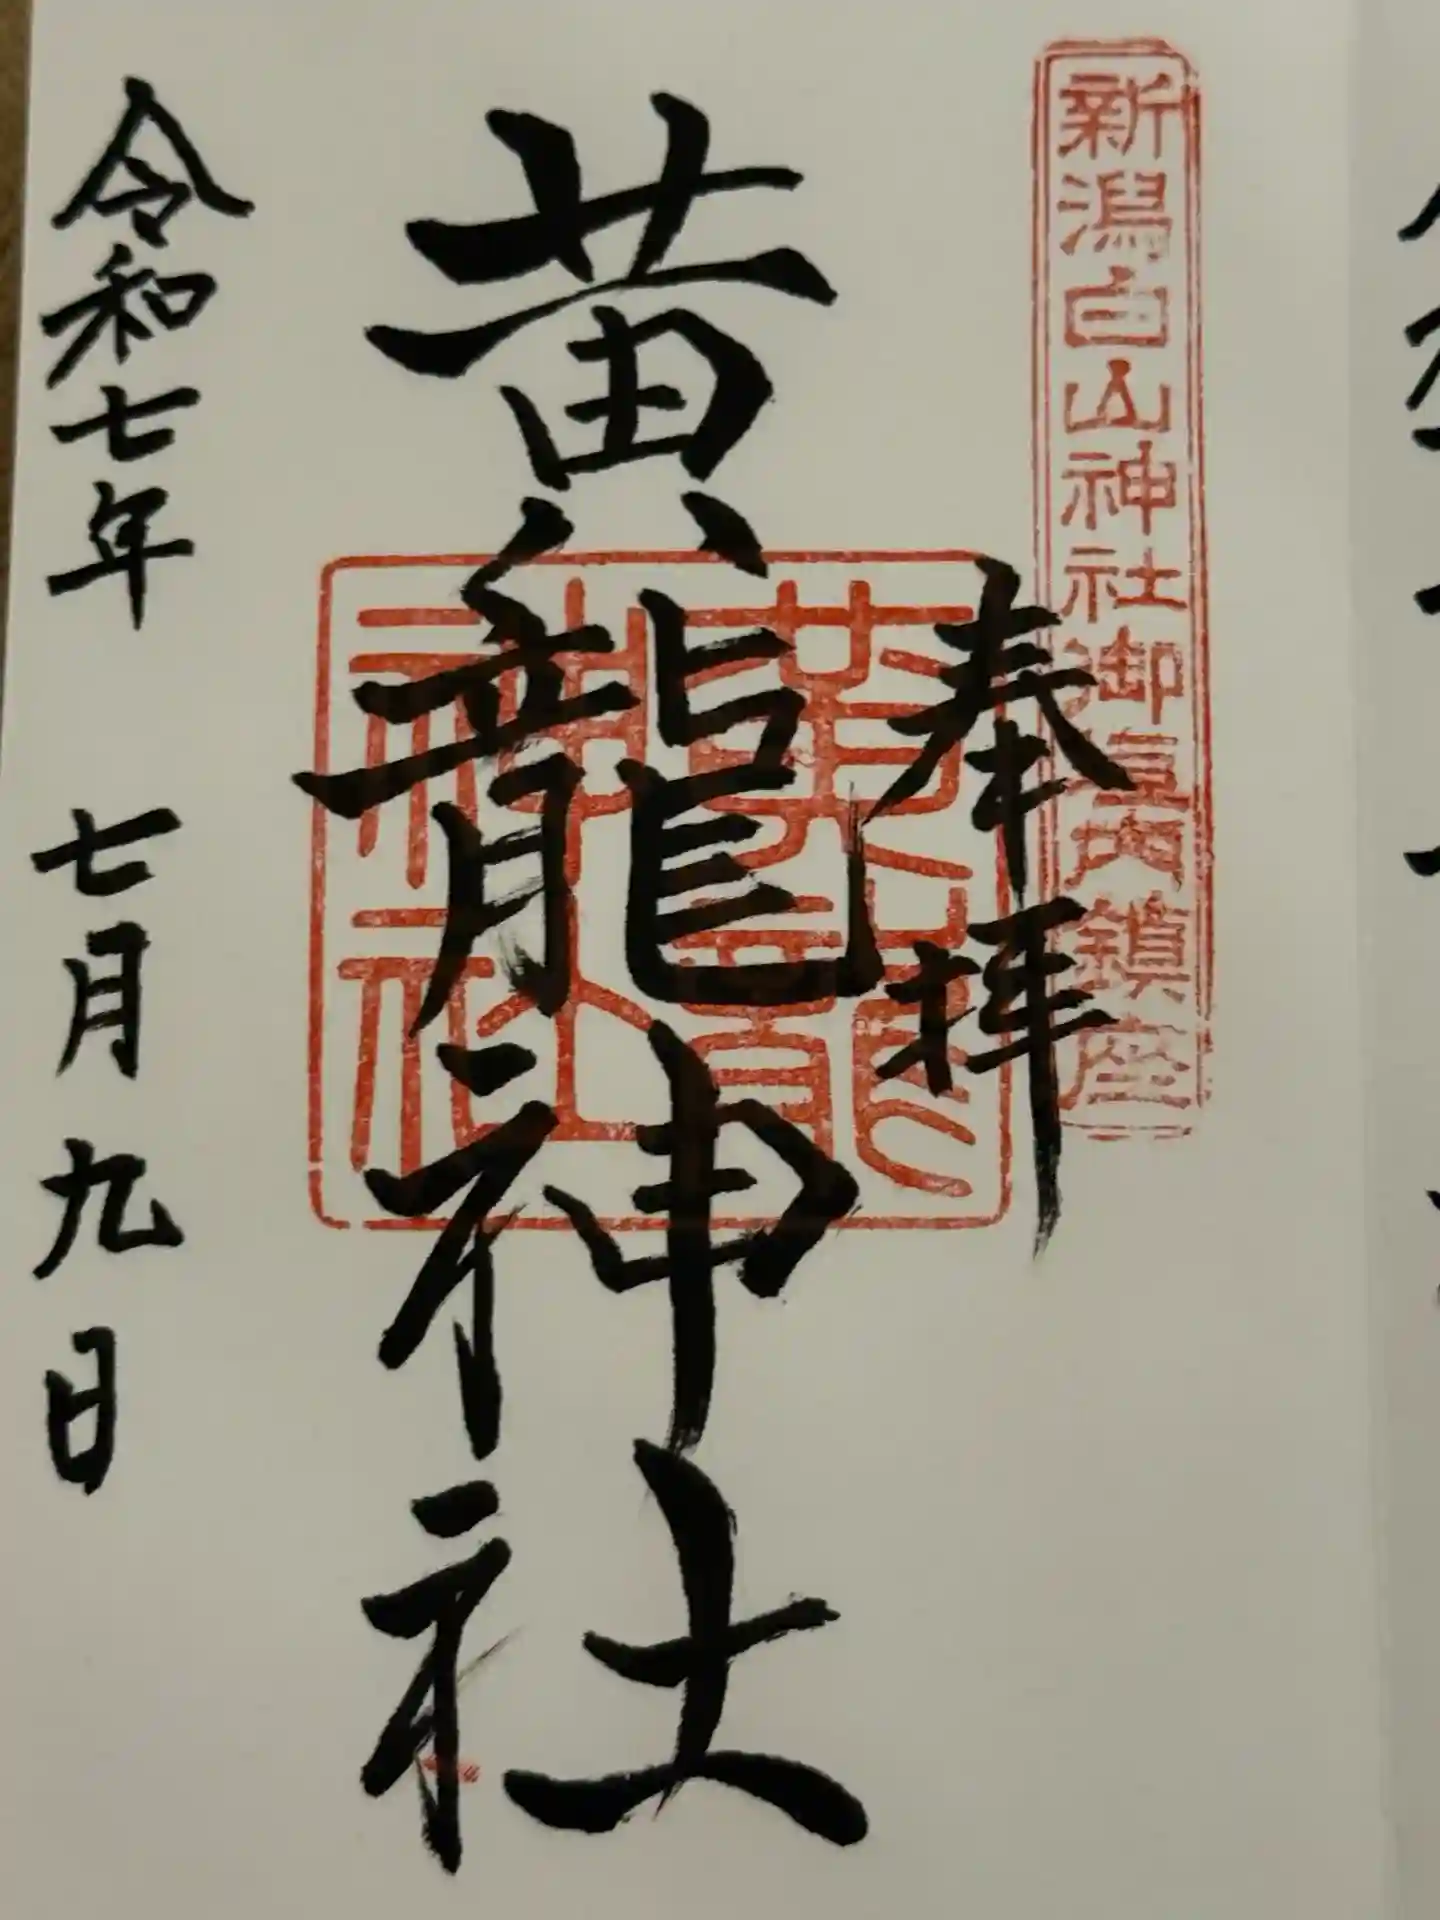 新潟白山神社御境内鎮座
奉拝
黄龍神社
黄龍
神社
令和七年 七月九日